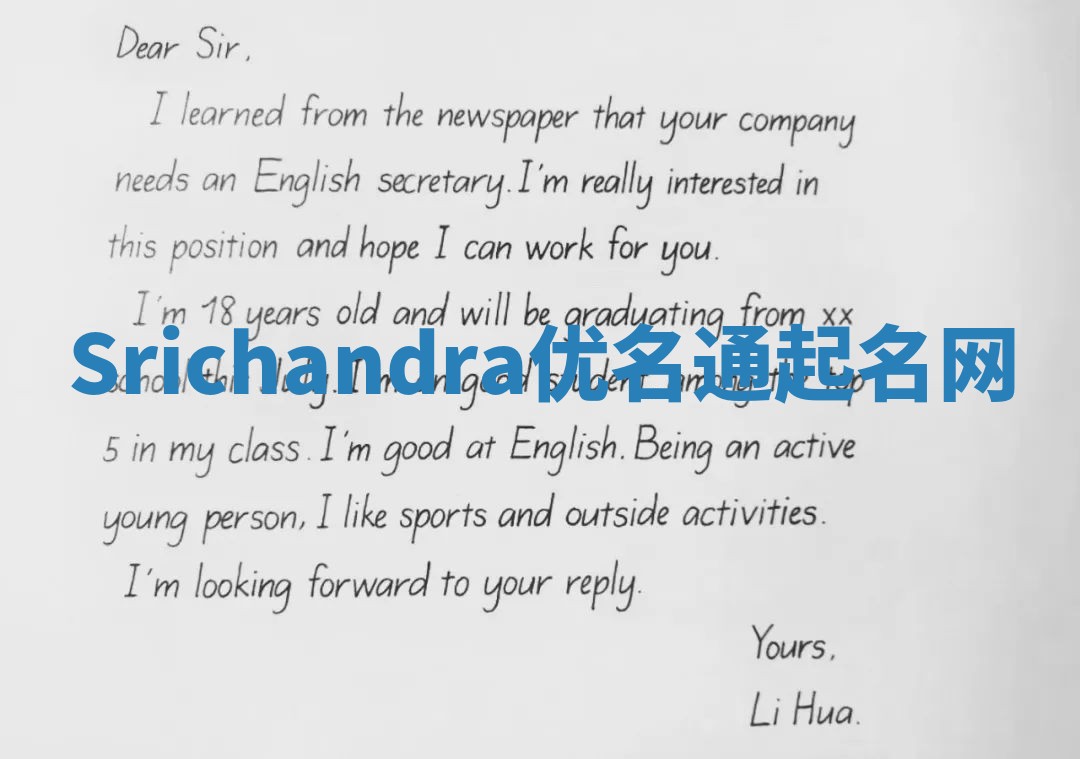 Dear Sir,
I learned from the newspaper that your company
needs an English secretary. I'm really interested in
this position and hope I can work for you.
I'm 18 years old and will be graduating from xx
Srichandra优名通起名网
school this July. I'm good student among the top
5 in my class. I'm good at English. Being an active
young person, I like sports and outside activities.
I'm looking forward to your reply.
Yours,
Li Hua.